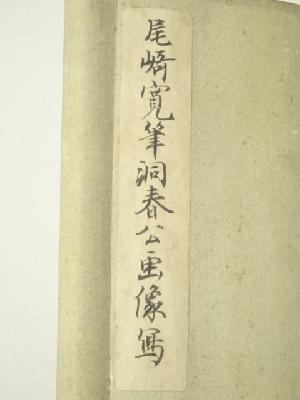 尾﨑寛筆洞春公画像写